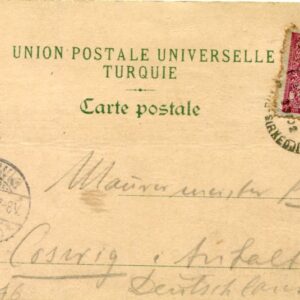 UNION POSTALE UNIVERSELLE
TURQUIE
Carte postale
SIRKEDJI
Maurermeister
Coswig i. Anhalt
Deutschland